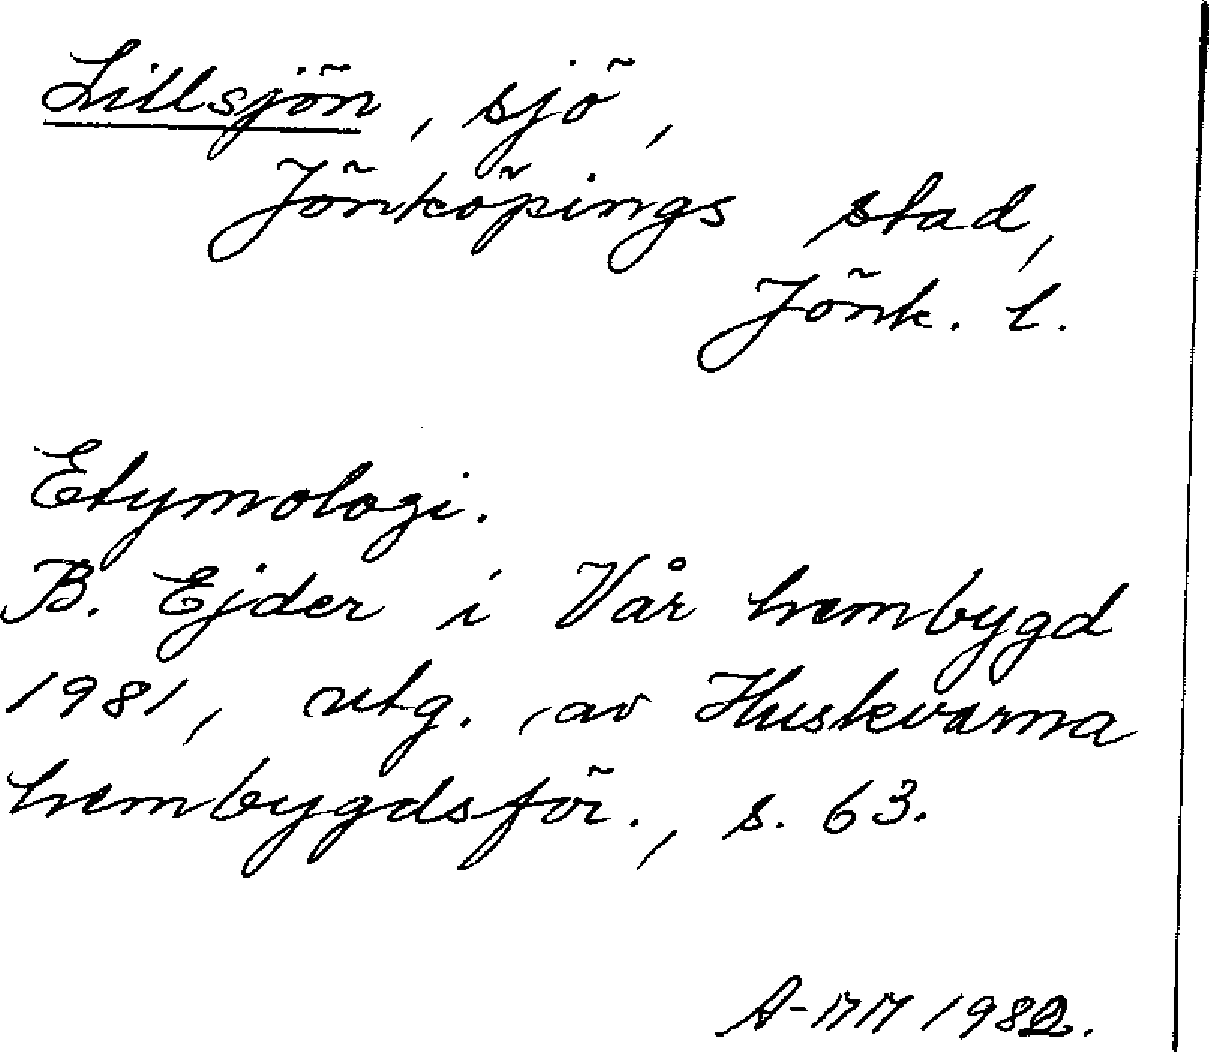 Lillsjön, sjö,
Jönköpings stad,
Jönk. l.
Etymologi.
B. Ejder i Vår hembygd
1981, utg. av Huskvarna
hembygdsför., s. 63.
A-MM 1982.